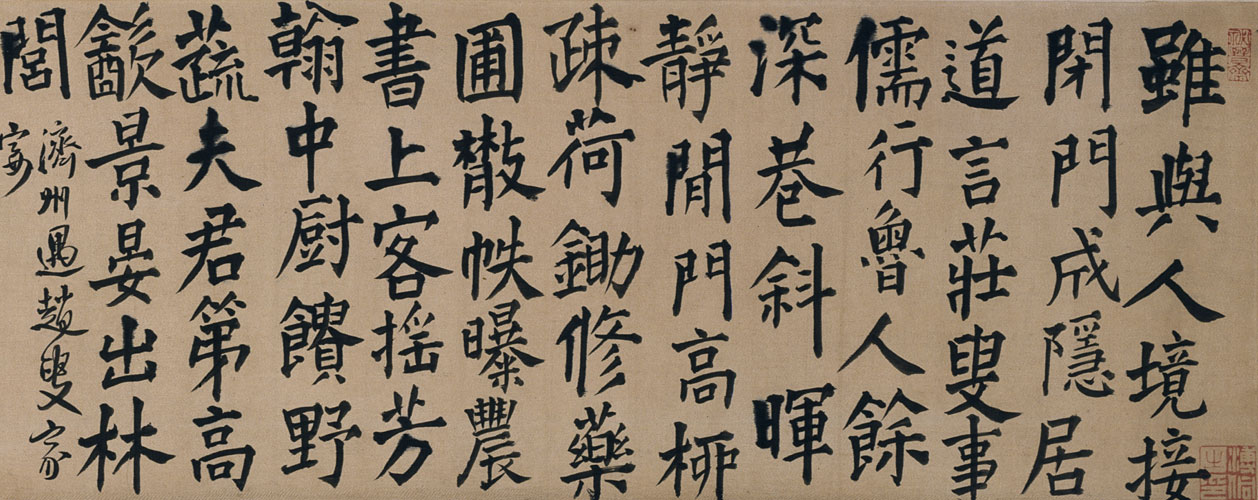 雖與人境接
閉門成隱居
道言莊叟事
儒行魯人餘
深巷斜暉
靜閒門高柳
疎荷鋤修藥
圃散帙曝農
書上客搖芳
翰中厨饋野
蔬夫君第高
㱃景晏出林
閭
濟州過趙叟家
宴